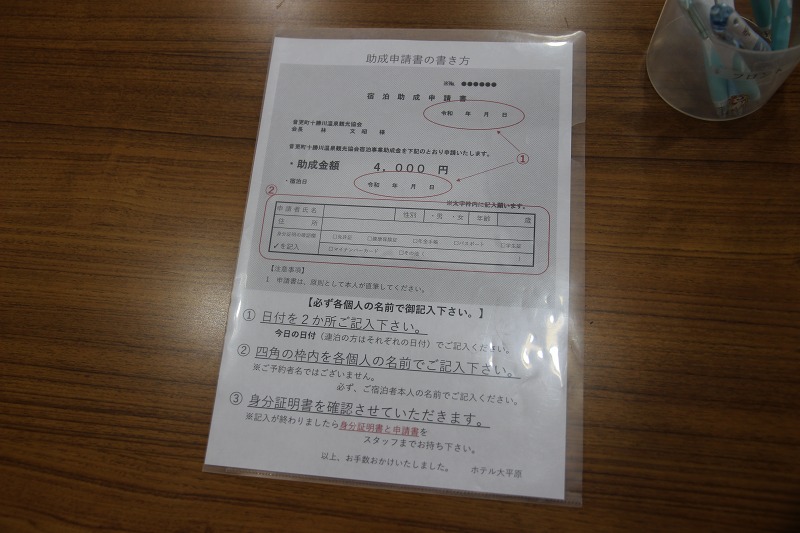 助成申請書の書き方
宿泊助成申請書
令和 年 月 日
音更町十勝川温泉観光協会
会長 林 文昭 様
音更町十勝川温泉観光協会宿泊事業助成金を下記のとおり申請いたします。
①
・助成金額 4,000 円
・宿泊日 令和 年 月 日
②
※太字枠内に記入願います。
申請者氏名 性別 ・男 ・女 年齢 歳
住 所
身分証明の確認欄 □免許証 □健康保険証 □年金手帳 □パスポート □学生証
✓を記入 □マイナンバーカード □その他( )
【注意事項】
1 申請書は、原則として本人が直筆してください。
【必ず各個人の名前で御記入下さい。】
① 日付を2か所ご記入下さい。
今日の日付(連泊の方はそれぞれの日付)でご記入ください。
② 四角の枠内を各個人の名前でご記入下さい。
※ご予約者名ではございません。
必ず、ご宿泊者本人の名前でご記入ください。
③ 身分証明書を確認させていただきます。
※記入が終わりましたら身分証明書と申請書を
スタッフまでお持ち下さい。
以上、お手数おかけいたしました。 ホテル大平原